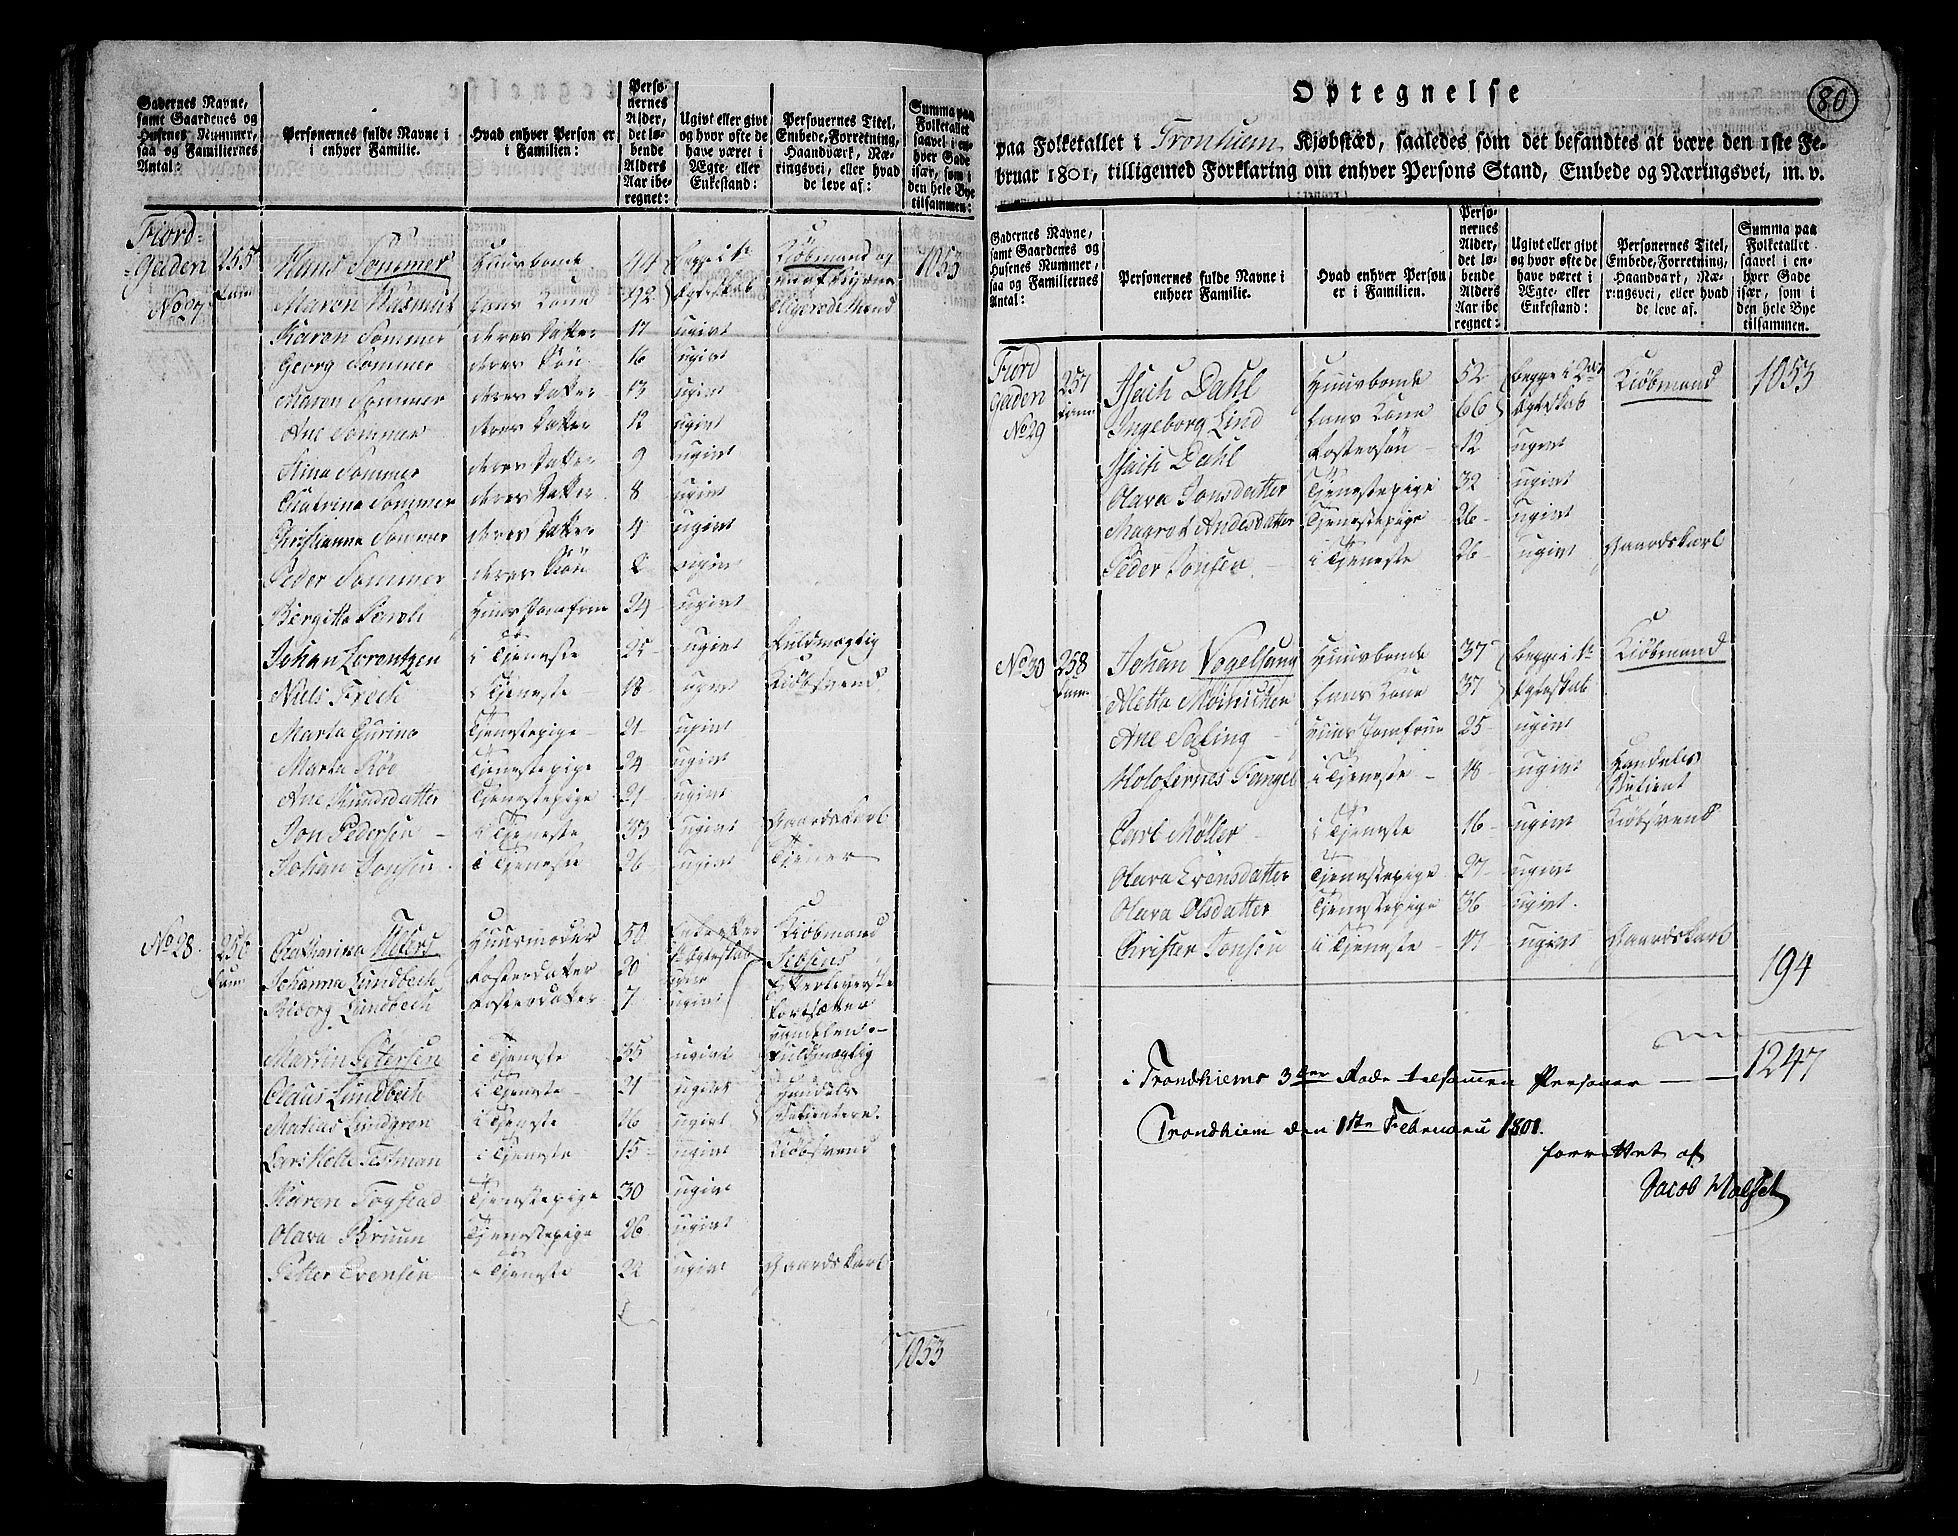 Gadernes Navne, samt Gaardenes og Husenes Nummer, saa og Familiernes Antal:
Personernes fulde Navne i enhver Familie.
Hvad enhver Person er i Familien:
Personernes Alder, det løbende Alders Aar iberegnet:
Ugivt eller givt og hvor ofte de have været i Ægte- eller Enkestand:
Personernes Titel, Embede, Forretning, Haandværk, Næringsvei, eller hvad de leve af:
Summa paa Folketallet saavel i enhver Gade især, som i den hele Bye tilsammen:
Fiord-
Gaden 255 Hans Sommer Huusbonde 44 begge i 1ste Kiöbmand og 1053
No 27 Fam: Maren Wasmut hans Kone 42 Egteskab
Karen Sommer deres Datter 17 ugivt
Georg Sommer deres Sön 16 ugivt
Maren Sommer deres Datter 13 ugivt
Ane Sommer deres Datter 12 ugivt
Stina Sommer deres Datter 9 ugivt
Chatrina Sommer deres Datter 8 ugivt
Christianna Sommer deres Datter 4 ugivt
Peder Sommer deres Sön 2 ugivt
Bergitta Huus Jomfrue 24 ugivt
Johan Lorentzen i Tjeneste 25 ugivt Fuldmægtig
Niels Frich i Tjeneste 18 ugivt Kiöbsvend
Marta Gurina Tjenestepige 21 ugivt
Marta Röe Tjenestepige 24 ugivt
Ane Knudsdatter Tjenestepige 21 ugivt
Jon Pedersen i Tjeneste 33 ugivt Gaardskarl
Johan Jonsen i Tjeneste 26 ugivt Tjener
No 28. 256 Catharina Huusmoder 50 Kiöbmand
Fam: Johanna Lundbech Fosterdatter 20 ugivt
Lundbech Fosterdatter 7 ugivt Efterleverske
fortsætter
Handelen
Martin Petersen i Tjeneste 35 ugivt Fuldmægtig
Claus Lundbech i Tjeneste 21 ugivt Handels
Matias Lundgren i Tjeneste 16 ugivt Betientere
Lars Holte Testman i Tjeneste 15 ugivt Kiöbsvend
Karen Togstad Tjenestepige 30 ugivt
Olava Bruun Tjenestepige 26 ugivt
Petter Evensen i Tjeneste 22 ugivt Gaardskarl
1053
80
Optegnelse
paa Folketallet i Tronhiem Kjøbstæd, saaledes som det befandtes at være den 1ste Fe-
bruar 1801, tilligemed Forklaring om enhver Persons Stand, Embede og Næringsvei, m. v.
Gadernes Navne, samt Gaardenes og Husenes Nummer, saa og Familiernes Antal:
Personernes fulde Navne i enhver Familie.
Hvad enhver Person er i Familien.
Personernes Alder, det løbende Alders Aar iberegnet:
Ugivt eller givt og hvor ofte de have været i Ægte- eller Enkestand:
Personernes Titel, Embede, Forretning, Haandværk, Næringsvei, eller hvad de leve af.
Summa paa Folketallet saavel i enhver Gade især, som i den hele Bye tilsammen.
Fiord
Gaden 257 Isach Dahl Huusbonde 52 begge i 2det Kiöbmand 1053
No 29 Fam: Ingeborg Lind hans Kone 66 Egteskab
Isach Dahl Fostersön 12 ugivt
Olava Jonsdatter Tjenestepige 32 ugivt
Magret Andesdatter Tjenestepige 26 ugivt
Peder Jonsen i Tjeneste 26 ugivt Gaardskarl
No 30 258 Johan Vogelsang Huusbonde 37 begge i 1ste Kiöbmand
Fam: Aletta Möinichen hans Kone 37 Egteskab
Ane Huus Jomfrue 25 ugivt
Holofernes Fangel i Tjeneste 18 ugivt Handels
Betient
Carl Möller i Tjeneste 16 ugivt Kiöbsvend
Olava Evensdatter Tjenestepige 27 ugivt
Olava Olsdatter Tjenestepige 36 ugivt.
Christer Jonsen i Tjeneste 17 ugivt Gaardskarl
194
i Trondhiems 3die Rode tilsammen Personer 1247
Trondhiem den 1ste Februarii 1801.
forrettet af
Jacob Halset